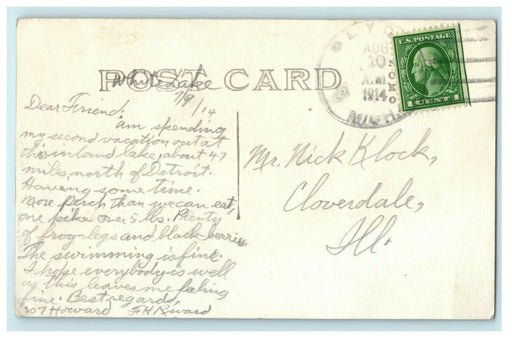 POST CARD
White Lake
7/9/14
Dear Friend,
am spending
my second vacation out at
this inland lake, about 47
miles, north of Detroit.
Having some time.
More perch than we can eat,
one pike over 5 lbs. Plenty
of frog-legs and black-berries
The swimming is fine.
I hope everybody is well
as this leaves me feeling
fine. Best regards,
307 Howard F.H.
Mr. Nick Klock,
Cloverdale,
Ill.
AUG
10
A.M.
1914
MICH.
U.S. POSTAGE
1 CENT 1